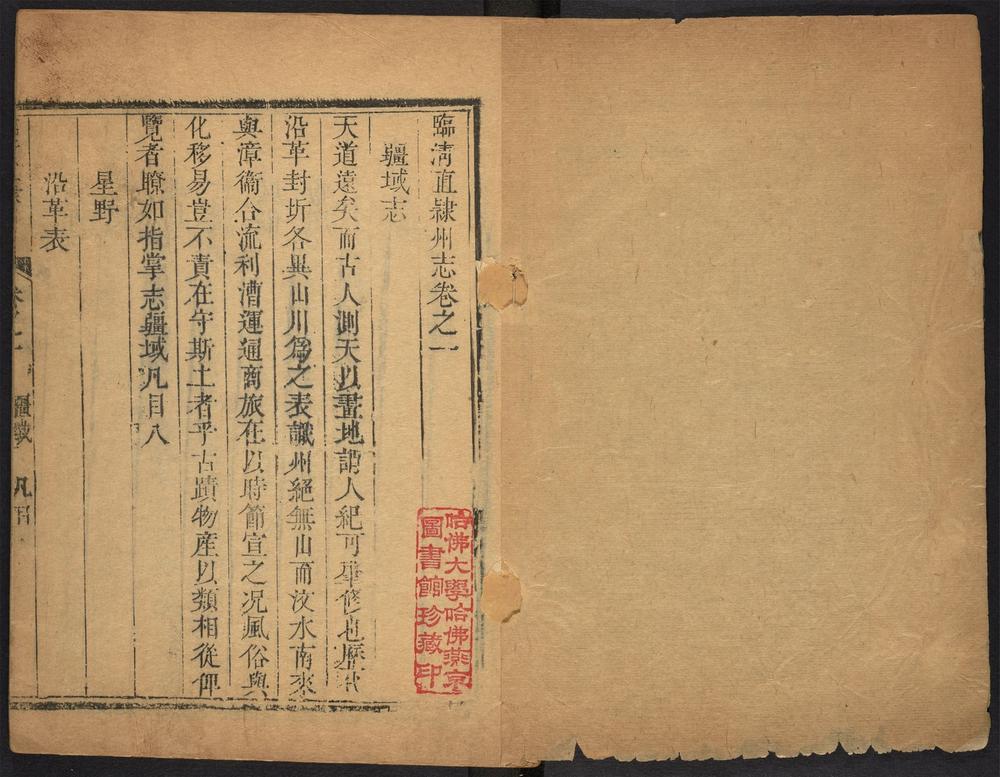 臨淸直隷州志卷之一
疆域志
天道遠矣而古人測天以畫地謂人紀可肇修也歷代
沿革封圻各異山川爲之表識州絕無山而汶水南來
與漳衞合流利漕運通商旅在以時節宣之况風俗與
化移易豈不責在守斯土者乎古蹟物產以類相從俾
覽者瞭如指掌志疆域凡目八
星野
沿革表
卷之一 疆域 凡目
哈佛大學哈佛燕京
圖書館珍藏印